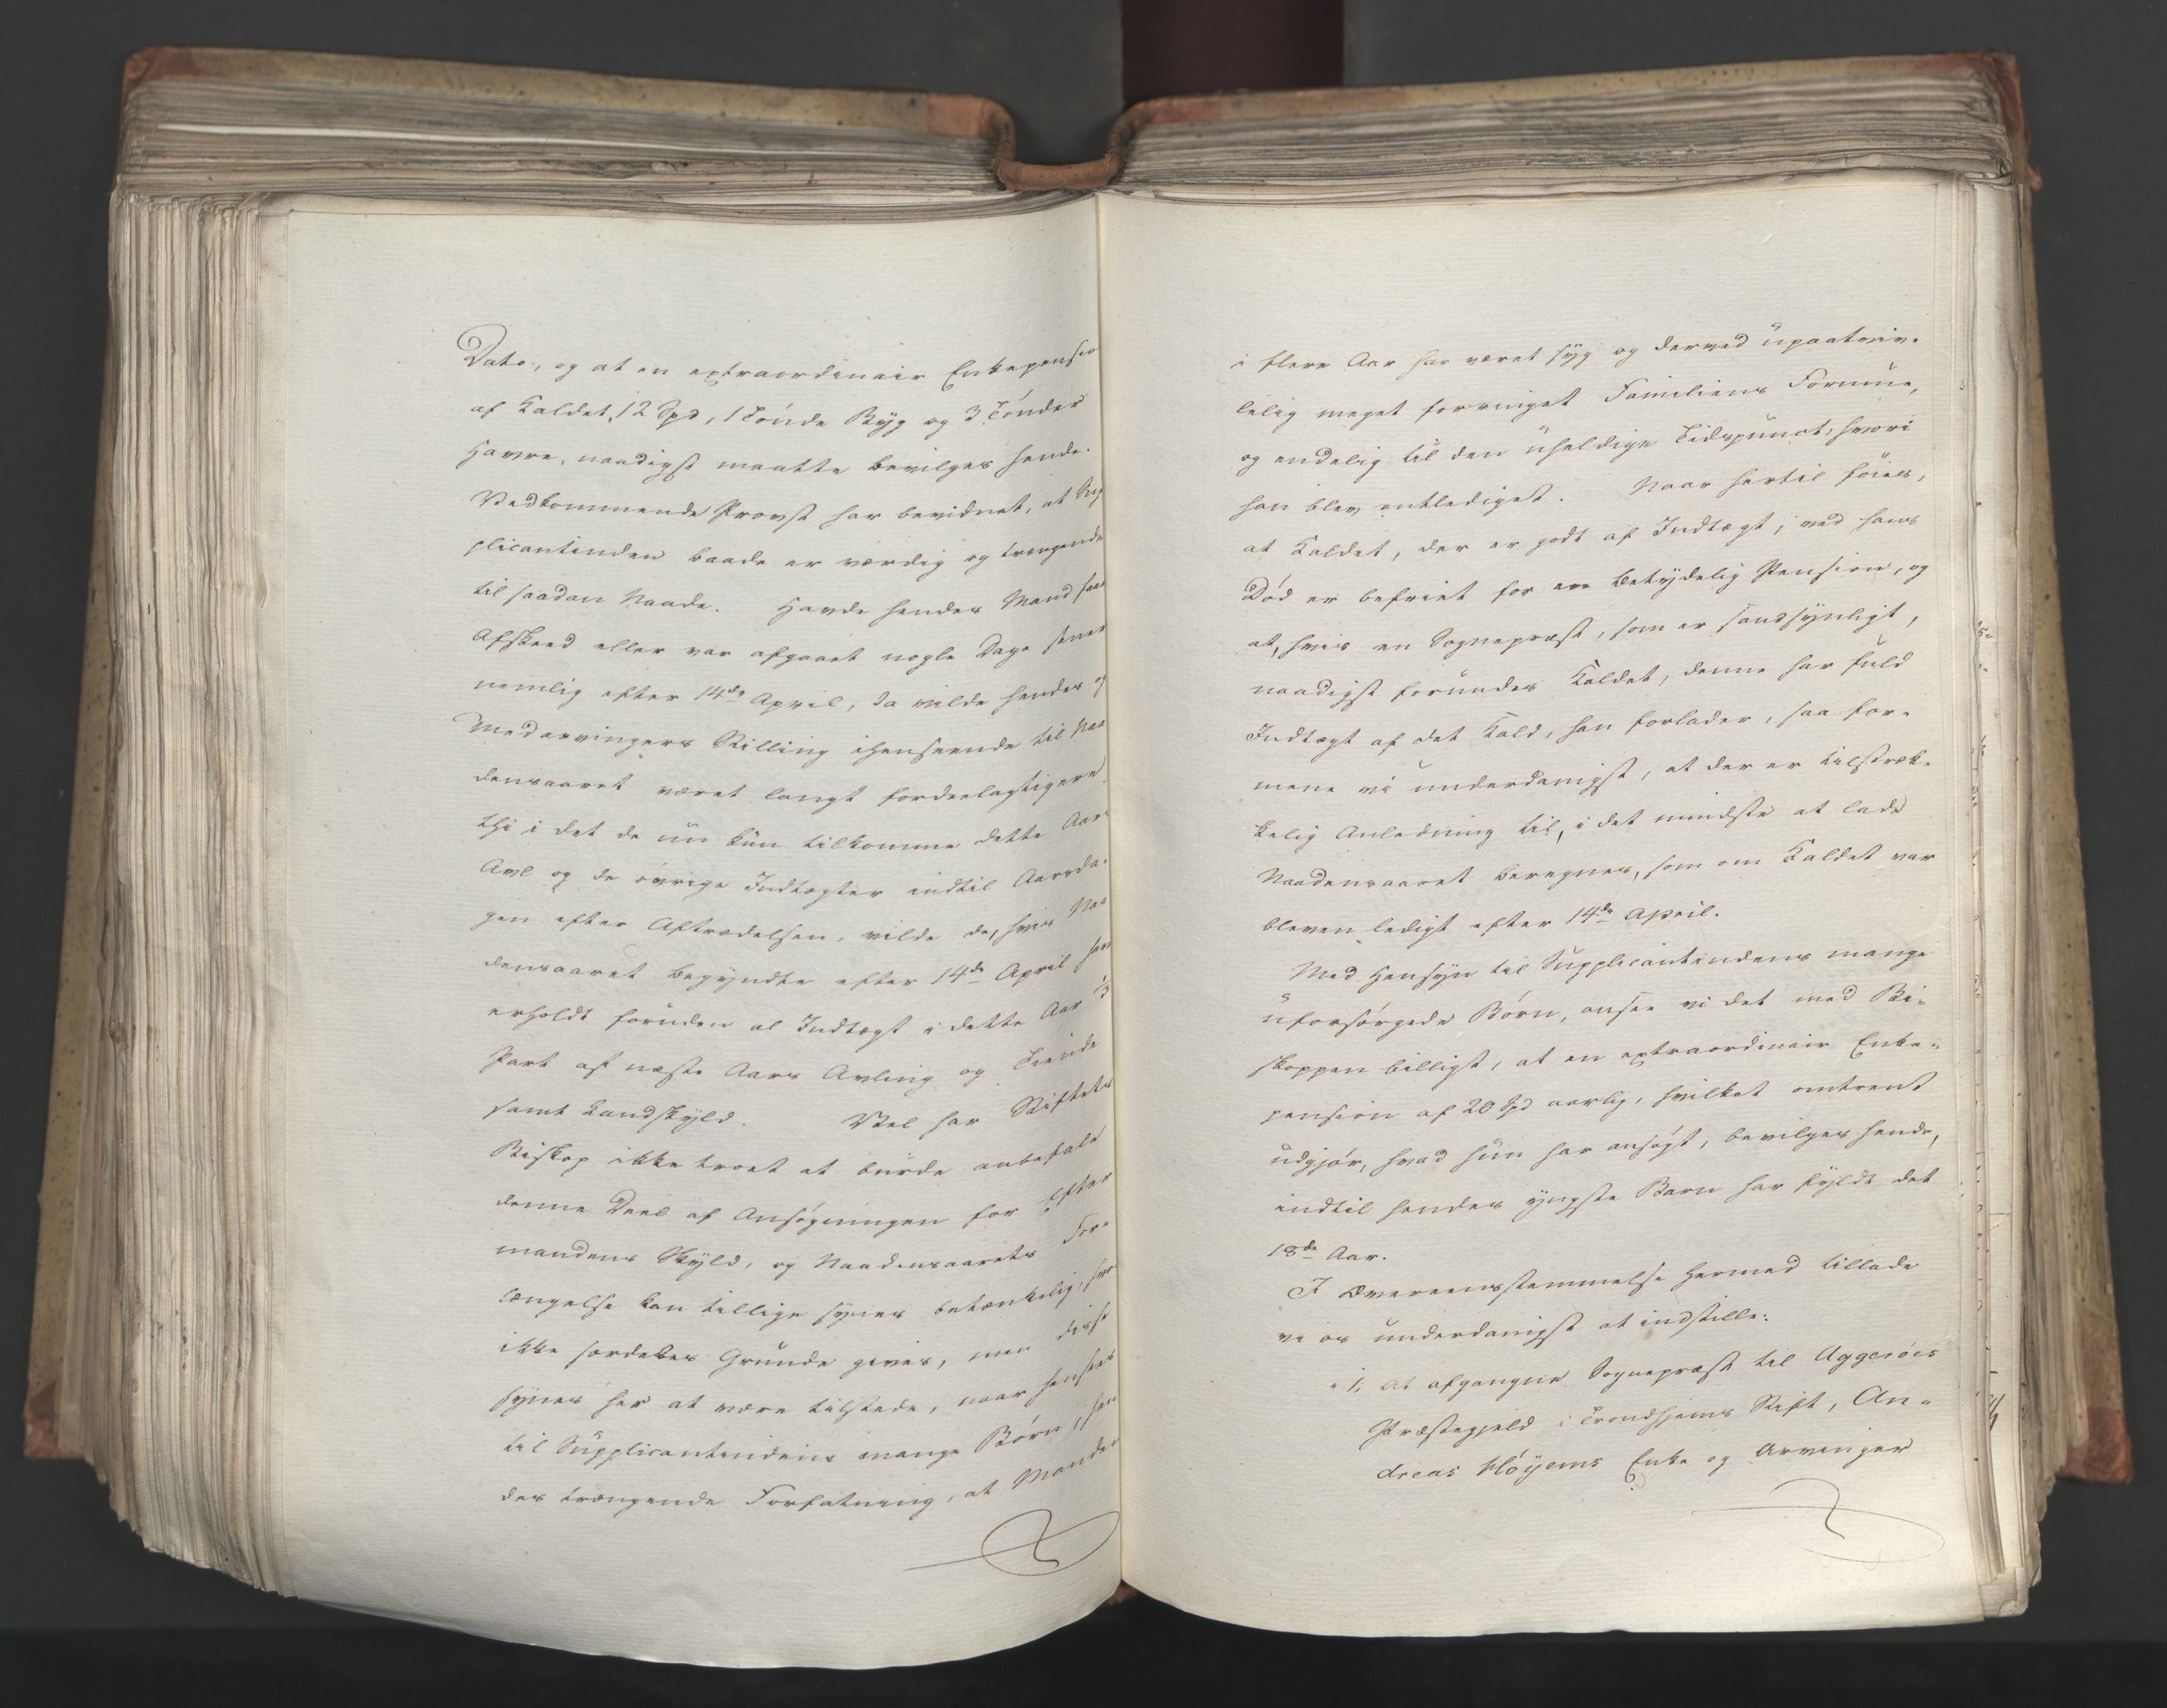 Dato, og at en extraordinair Enkepensio
af Kaldet, 12 Spd, 1 Tønde Byg og 3 Tønder
Havre, naadigst maatte bevilges hende.
Vedkommende Provst har bevidnet, at Sup
plicantinden baade er værdig og trængende
til saadan Naade. Havde hendes Mand faaet
Afskeed eller var afgaaet nogle Dage senere
nemlig efter 14de April, da vilde hendes og
Medarvingers Stilling ihenseende til Naa
densaaret været langt fordeelagtigere,
thi i det de nu kun tilkomme dette Aars
Avl og de øvrige Indtægter indtil Aarsda-
gen efter Aftrædelsen, vilde de, hvis Naa
densaaret begyndte efter 14de April have
erholdt foruden al Indtægt i dette Aar 1/3
Part af næste Aars Avling og Tiende
samt Landskyld. Vel har Stiftets
Biskop ikke troet at burde anbefale
denne Deel af Ansøgningen for Efter
mandens Skyld, og Naadensaarets For-
længelse kan tillige synes betænkelig, hvor
ikke særdeles Grunde gives, men disse
synes her at være tilstede, naar hensees
til Supplicantindens mange Børn, hen
des trængende Forfatning, at Manden
i flere Aar har været syg og derved upaatviv-
lelig meget forringet Familiens Formue,
og endelig til den uheldige Tidspunct, hvori
han blev entlediget. Naar hertil føies,
at Kaldet, der er godt af Indtægt, ved hans
Død er befriet for en betydelig Pension, og
at, hvis en Sognepræst, som er sandsynligt,
naadigst forundes Kaldet, denne har fuld
Indtægt af det Kald, han forlader, saa for-
mene vi underdanigst, at der er tilstræk-
kelig Anledning til, i det mindste at lade
Naadensaaret beregnes, som om Kaldet var
bleven ledigt efter 14de April.
Med Hensyn til Supplicantindens mange
uforsørgede Børn, ansee vi det med Bi-
skoppen billigt, at en extraordinair Enke-
pension af 20 Spd aarlig, hvilket omtrent
udgjør, hvad hun har ansøgt, bevilges hende,
indtil hendes yngste Barn har fyldt det
18de Aar.
I Overeensstemmelse hermed tillade
vi os underdanigst at indstille:
"1, at afgangne Sognepræst til Aggerøes
Præstegjeld i Trondhjems Stift, An-
dreas Høyems Enke og Arvinger